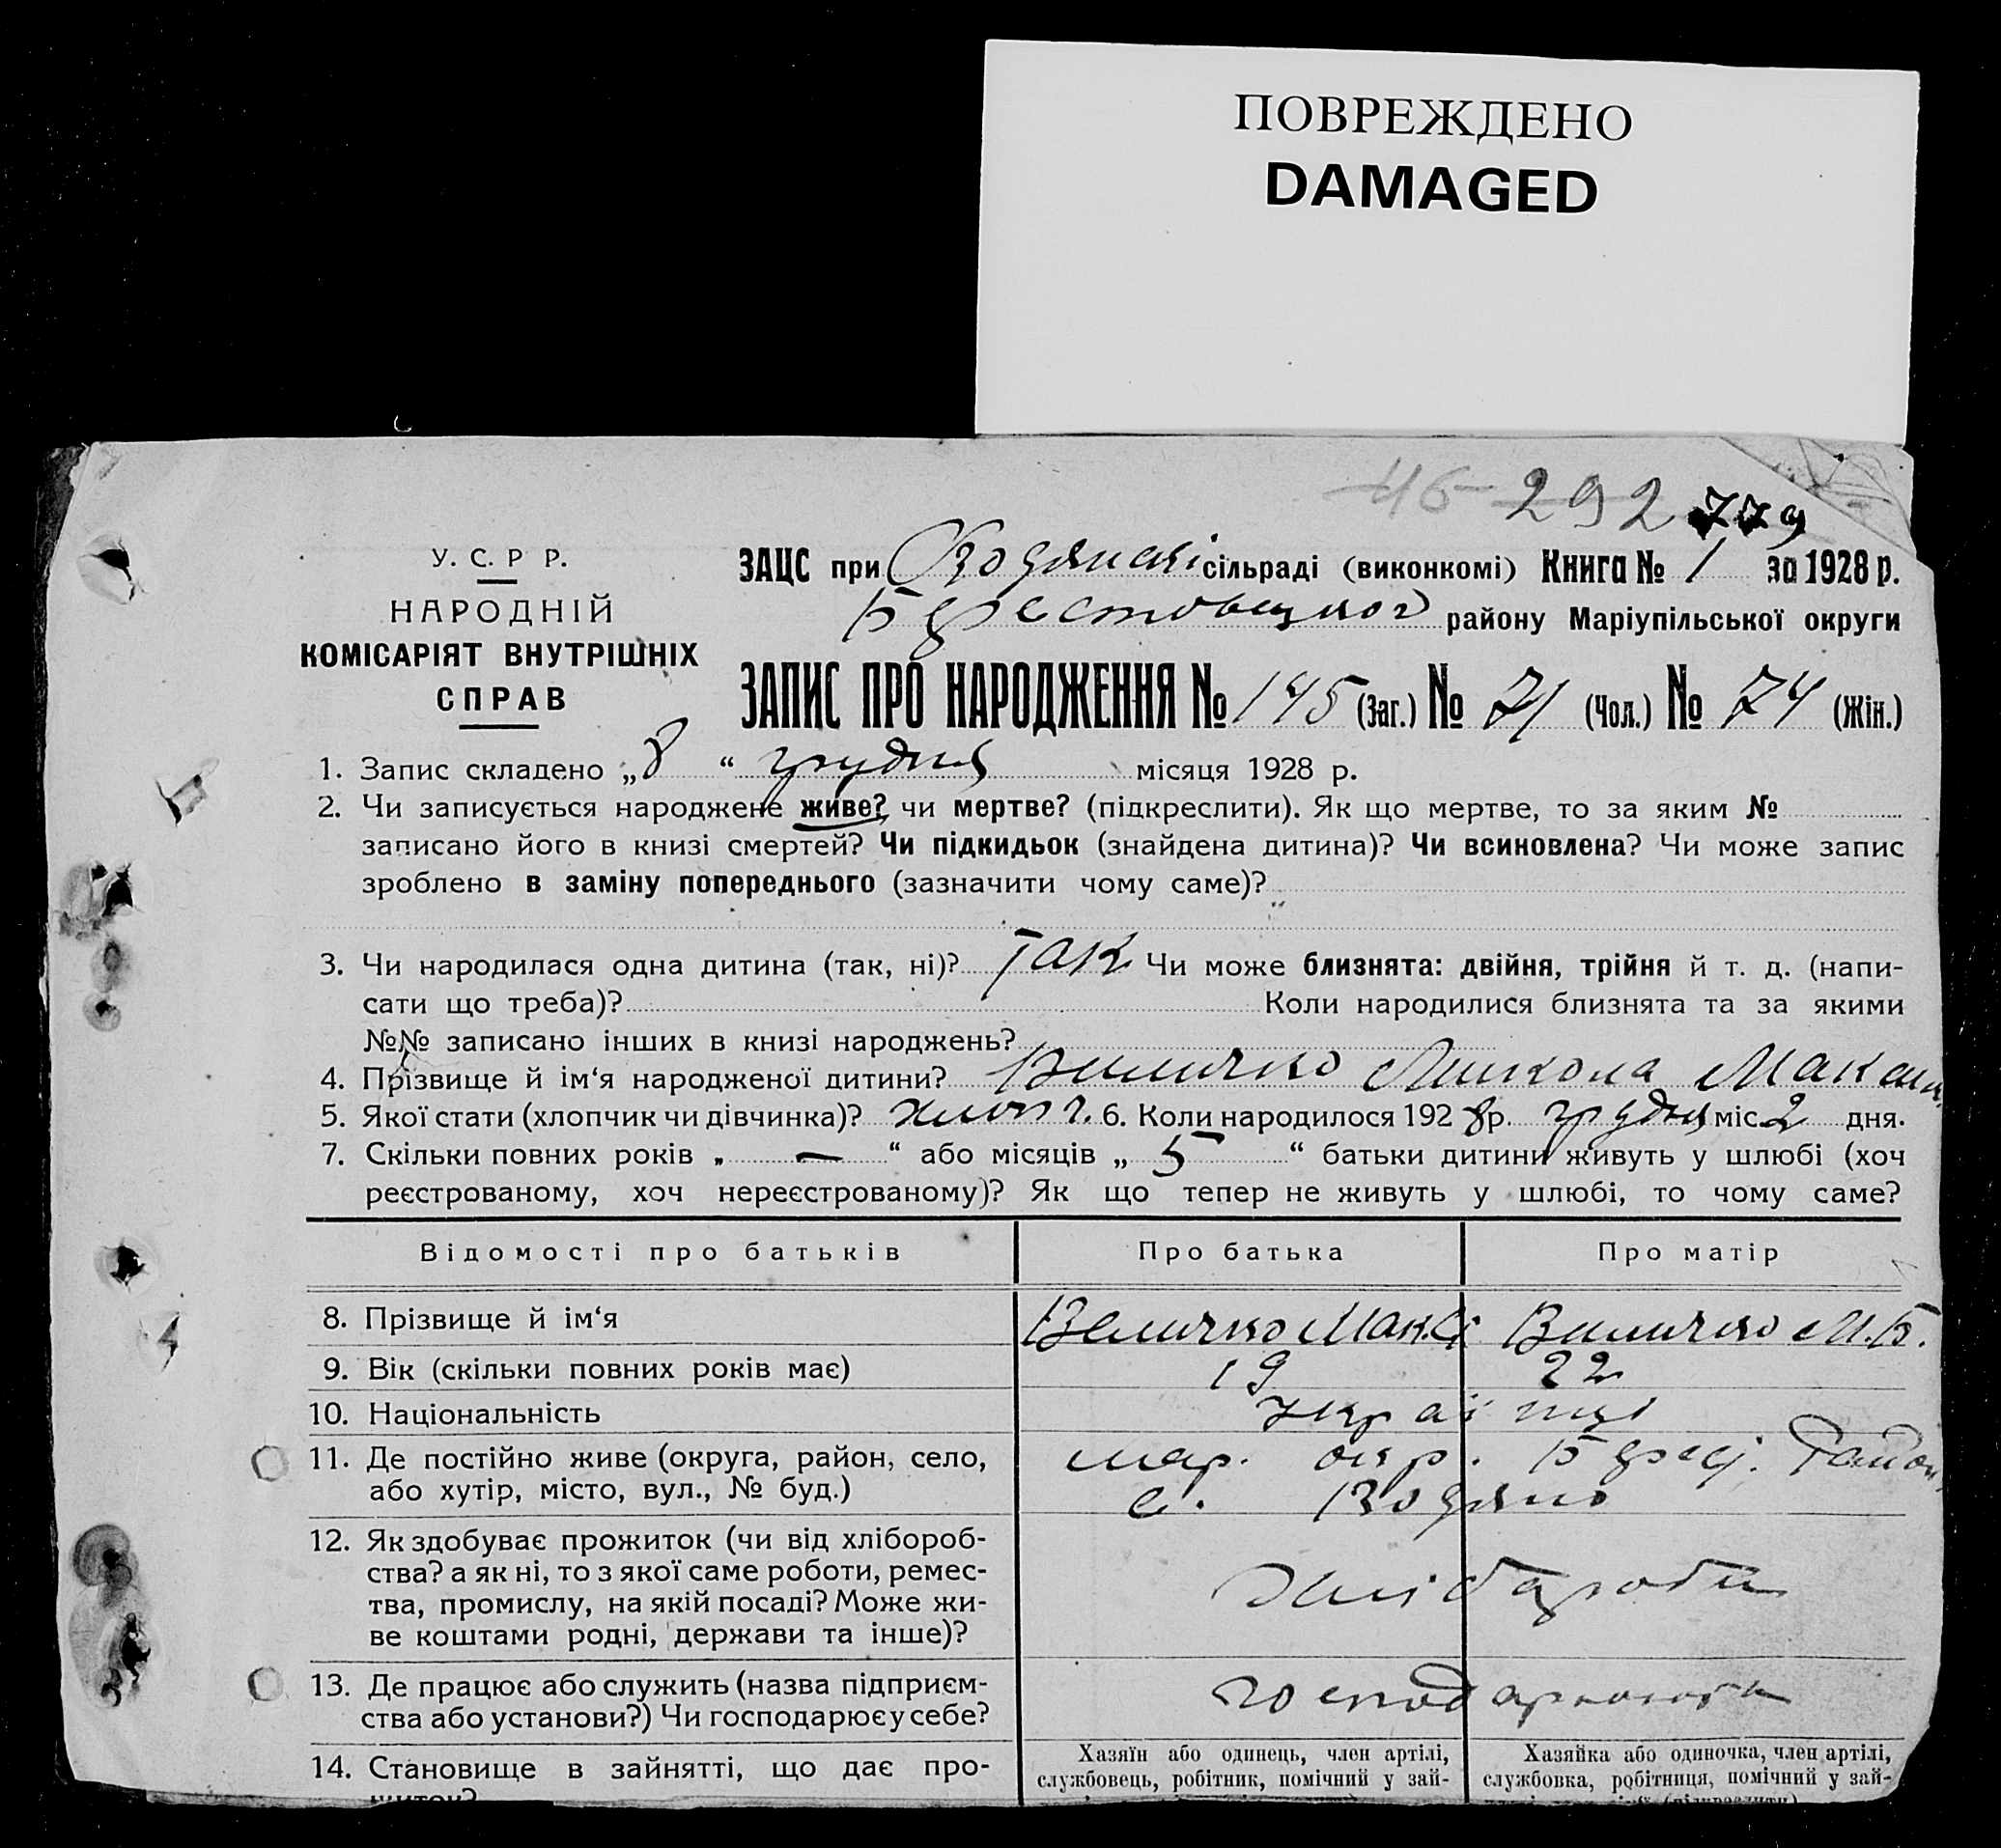 ПОВРЕЖДЕНО
DAMAGED
46 292 779
У. С. Р Р.
НАРОДНІЙ
КОМІСАРІЯТ ВНУТРІШНІХ
СПРАВ
ЗАЦС при Водянскі сільраді (виконкомі) Книга № 1 за 1928 р.
району Маріупільської округи
ЗАПИС ПРО НАРОДЖЕННЯ № 145 (Заг.) № 71 (Чол.) № 74 (Жін.)
1. Запис складено „8“ грудня місяця 1928 р.
2. Чи записується народжене живе? чи мертве? (підкреслити). Як що мертве, то за яким №
записано його в книзі смертей? Чи підкидьок (знайдена дитина)? Чи всиновлена? Чи може запис
зроблено в заміну попереднього (зазначити чому саме)?
3. Чи народилася одна дитина (так, ні)? Так Чи може близнята: двійня, трійня й т. д. (напи-
сати що треба)? Коли народилися близнята та за якими
№№ записано інших в книзі народжень?
4. Прізвище й ім‘я народженої дитини? Виличко Микола Макеим.
5. Якої стати (хлопчик чи дівчинка)? хлопч. 6. Коли народилося 1928 р. грудня міс. 2 дня.
7. Скільки повних років „ — “ або місяців „ 5 “ батьки дитини живуть у шлюбі (хоч
реєстрованому, хоч нереєстрованому)? Як що тепер не живуть у шлюбі, то чому саме?
Відомості про батьків Про батька Про матір
8. Прізвище й ім‘я Величко Мак. Виличко М.Б.
9. Вік (скільки повних років має) 19 22
10. Національність українці
11. Де постійно живе (округа, район, село, мар. окр. район
або хутір, місто, вул., № буд.) с. Водяно
12. Як здобуває прожиток (чи від хлібороб-
ства? а як ні, то з якої саме роботи, ремес-
тва, промислу, на якій посаді? Може жи-
ве коштами родні, держави та інше)?
хлібароби
13. Де працює або служить (назва підприєм-
ства або установи?) Чи господарює у себе?
14. Становище в зайнятті, що дає про-
житок?
Хазяїн або одинець, член артілі,
службовець, робітник, помічний у зай-
Хазяйка або одиночка, член артілі,
службовка, робітниця, помічний у зай-